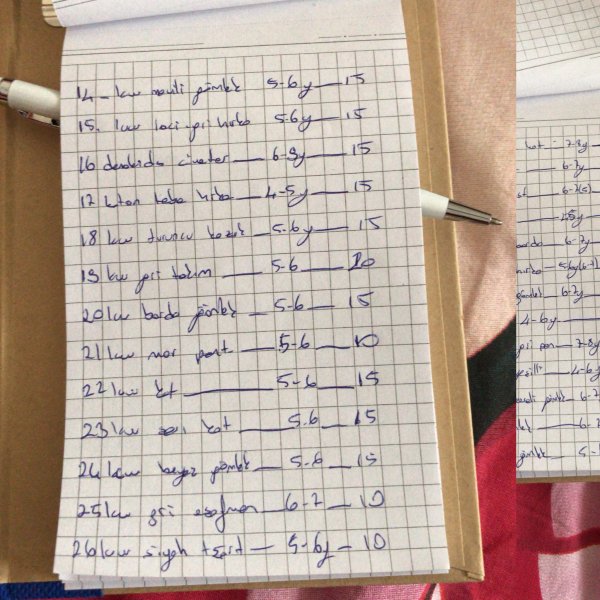 14 - kw mavili gömlek 5-6y — 15
15. kw laci gri hırka 5-6y 15
16 — 6-9y — 15
17 hırka — 4-5y — 15
18 kw turuncu kazak — 5-6y — 15
19 kw gri takım — 5-6 — 20
20 kw bordo gömlek — 5-6 — 15
21 kw mor pant — 5-6 — 10
22 kw kt — 5-6 — 15
23 kw kot — 5-6 — 15
24 kw beyaz gömlek — 5-6 — 15
25 kw gri eşofman — 6-7 — 10
26 kw siyah tşört — 5-6y — 10
kot - 7-8y
— 6-7y
6-7(5)
bordo — 6-7y
hırka — 5-6y(6-7)
gömlek — 6-7y
4-6y —
gri pan — 7-8y
yeşilli — 4-6y
mavili gömlek — 6-7
gömlek — 5-